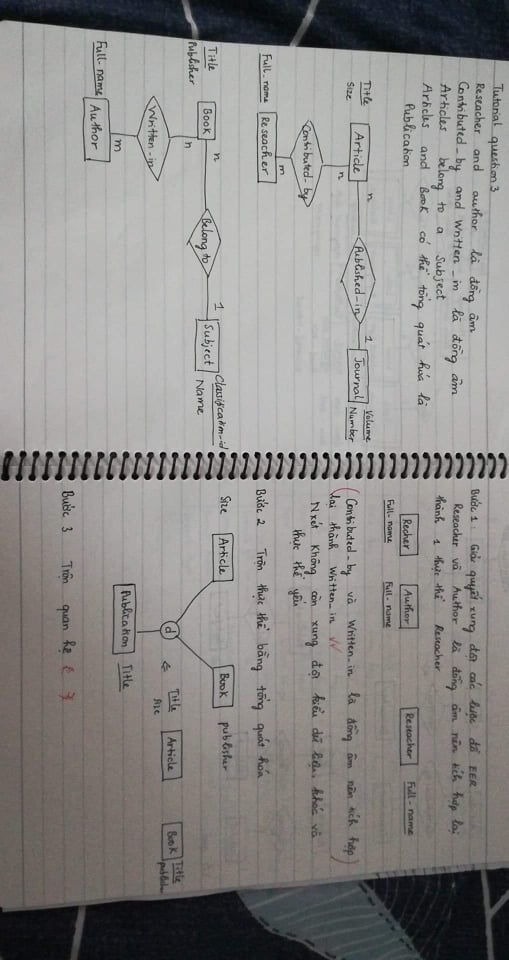 Tutorial question 3
Reseacher and author là đồng âm
Contributed_by and Written_in là đồng âm
Articles belong to a Subject
Articles and Book có thể tổng quát hoá là
Publication
Title
Size
Article
n
Published_in
1
Journal
Volume
Number
n
Contributed_by
m
Full_name
Reseacher
Title
Publisher
Book
n
Belong to
1
Subject
Classification_id
Name
n
Written_in
m
Full_name
Author
Bước 1: Giải quyết xung đột các lược đồ EER
Reseacher và Author là đồng âm nên tích hợp lại
thành 1 thực thể Reseacher
Recher
Full_name
Author
Full_name
Reseacher
Full_name
(Contributed_by và Written_in là đồng âm nên tích hợp)
lại thành Written_in
Nxét không còn xung đột kiểu dữ liệu, khác và
thực thể yếu
Bước 2 Trộn thực thể bằng tổng quát hóa
Size
Article
Book
publisher
d
Publication
Title
Title
Size
Article
Book
Title
publisher
Bước 3 Trộn quan hệ